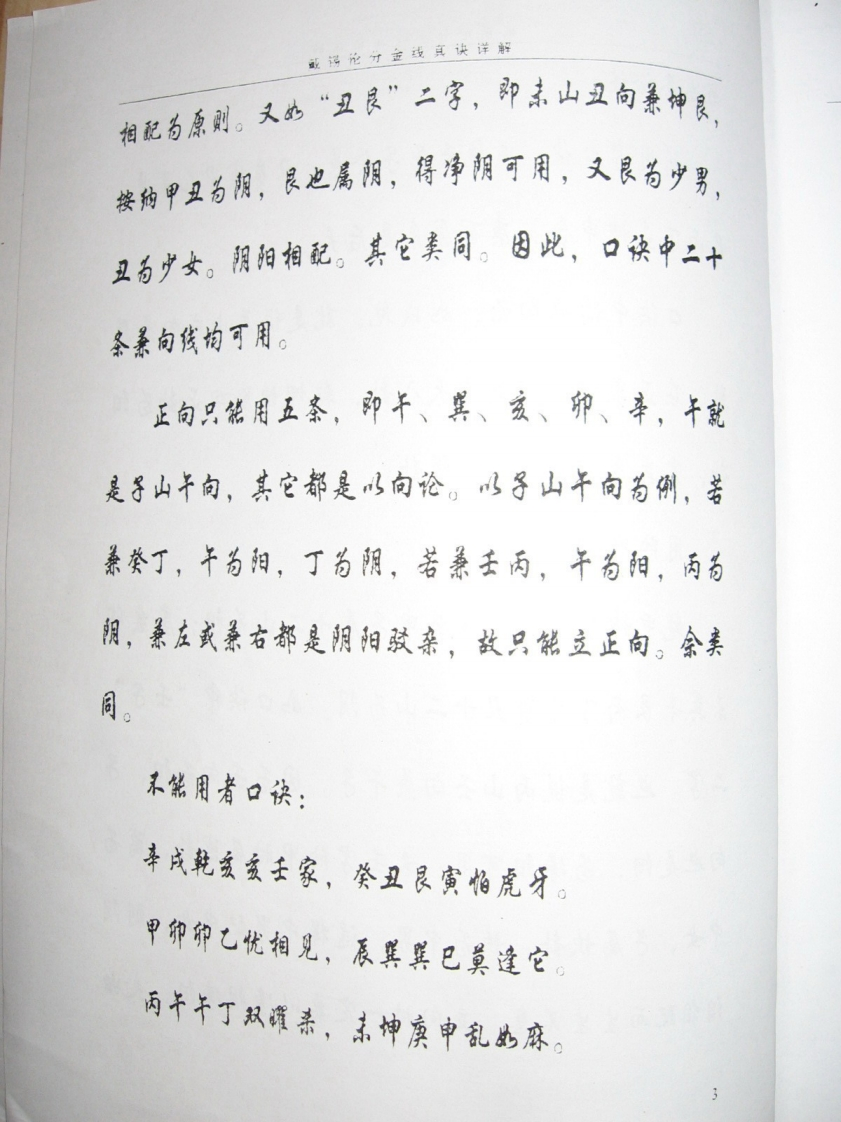 戴锡伦分金线真诀详解
相配为原则。又如“丑艮”二字，即未山丑向兼坤艮，
按纳甲丑为阴，艮也属阴，得净阴可用，又艮为少男，
丑为少女。阴阳相配。其它类同。因此，口诀中二十
条兼向线均可用。
正向只能用五条，即午、巽、亥、卯、辛，午就
是子山午向，其它都是以向论。以子山午向为例，若
兼癸丁，午为阳，丁为阴，若兼壬丙，午为阳，丙为
阴，兼左或兼右都是阴阳驳杂，故只能立正向。余类
同。
不能用者口诀：
辛戌乾亥亥壬家，癸丑艮寅怕虎牙。
甲卯卯乙忧相见，辰巽巽巳莫逢它。
丙午午丁双曜杀，未坤庚申乱如麻。
3